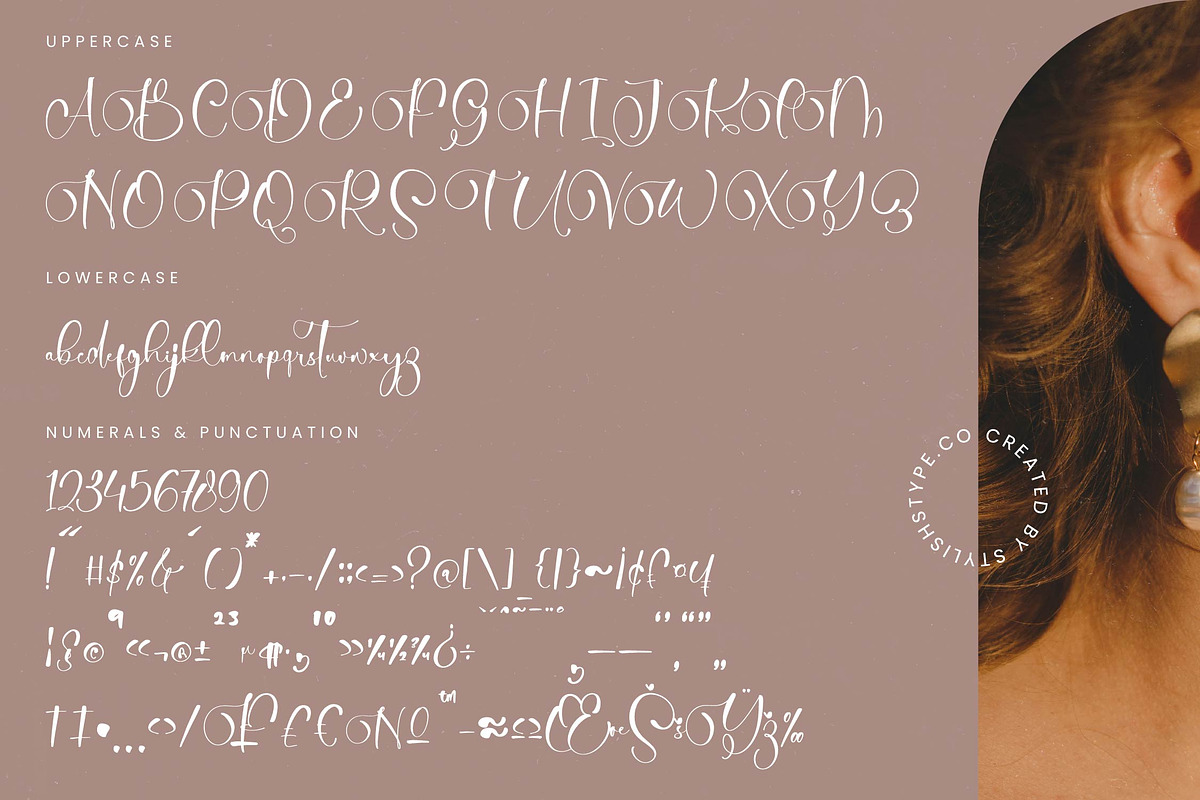 UPPERCASE
ABCDEFGHIJKLM
NOPQRSTUVWXYZ
LOWERCASE
abcdefghijklmnopqrstuvwxyz
NUMERALS & PUNCTUATION
1234567890
!"#$%&'()*+,-./:;<=>?@[\]{|}~¡¢£¤¥
¦§©ª«¬®±²³µ¶·¸¹º»¼½¾¿÷–—‘’‚“”„
†‡•…‹›/₣₤€№™−≈≤≥ŒœŠšŸž‰
CREATED BY STYLISHSTYPE.CO